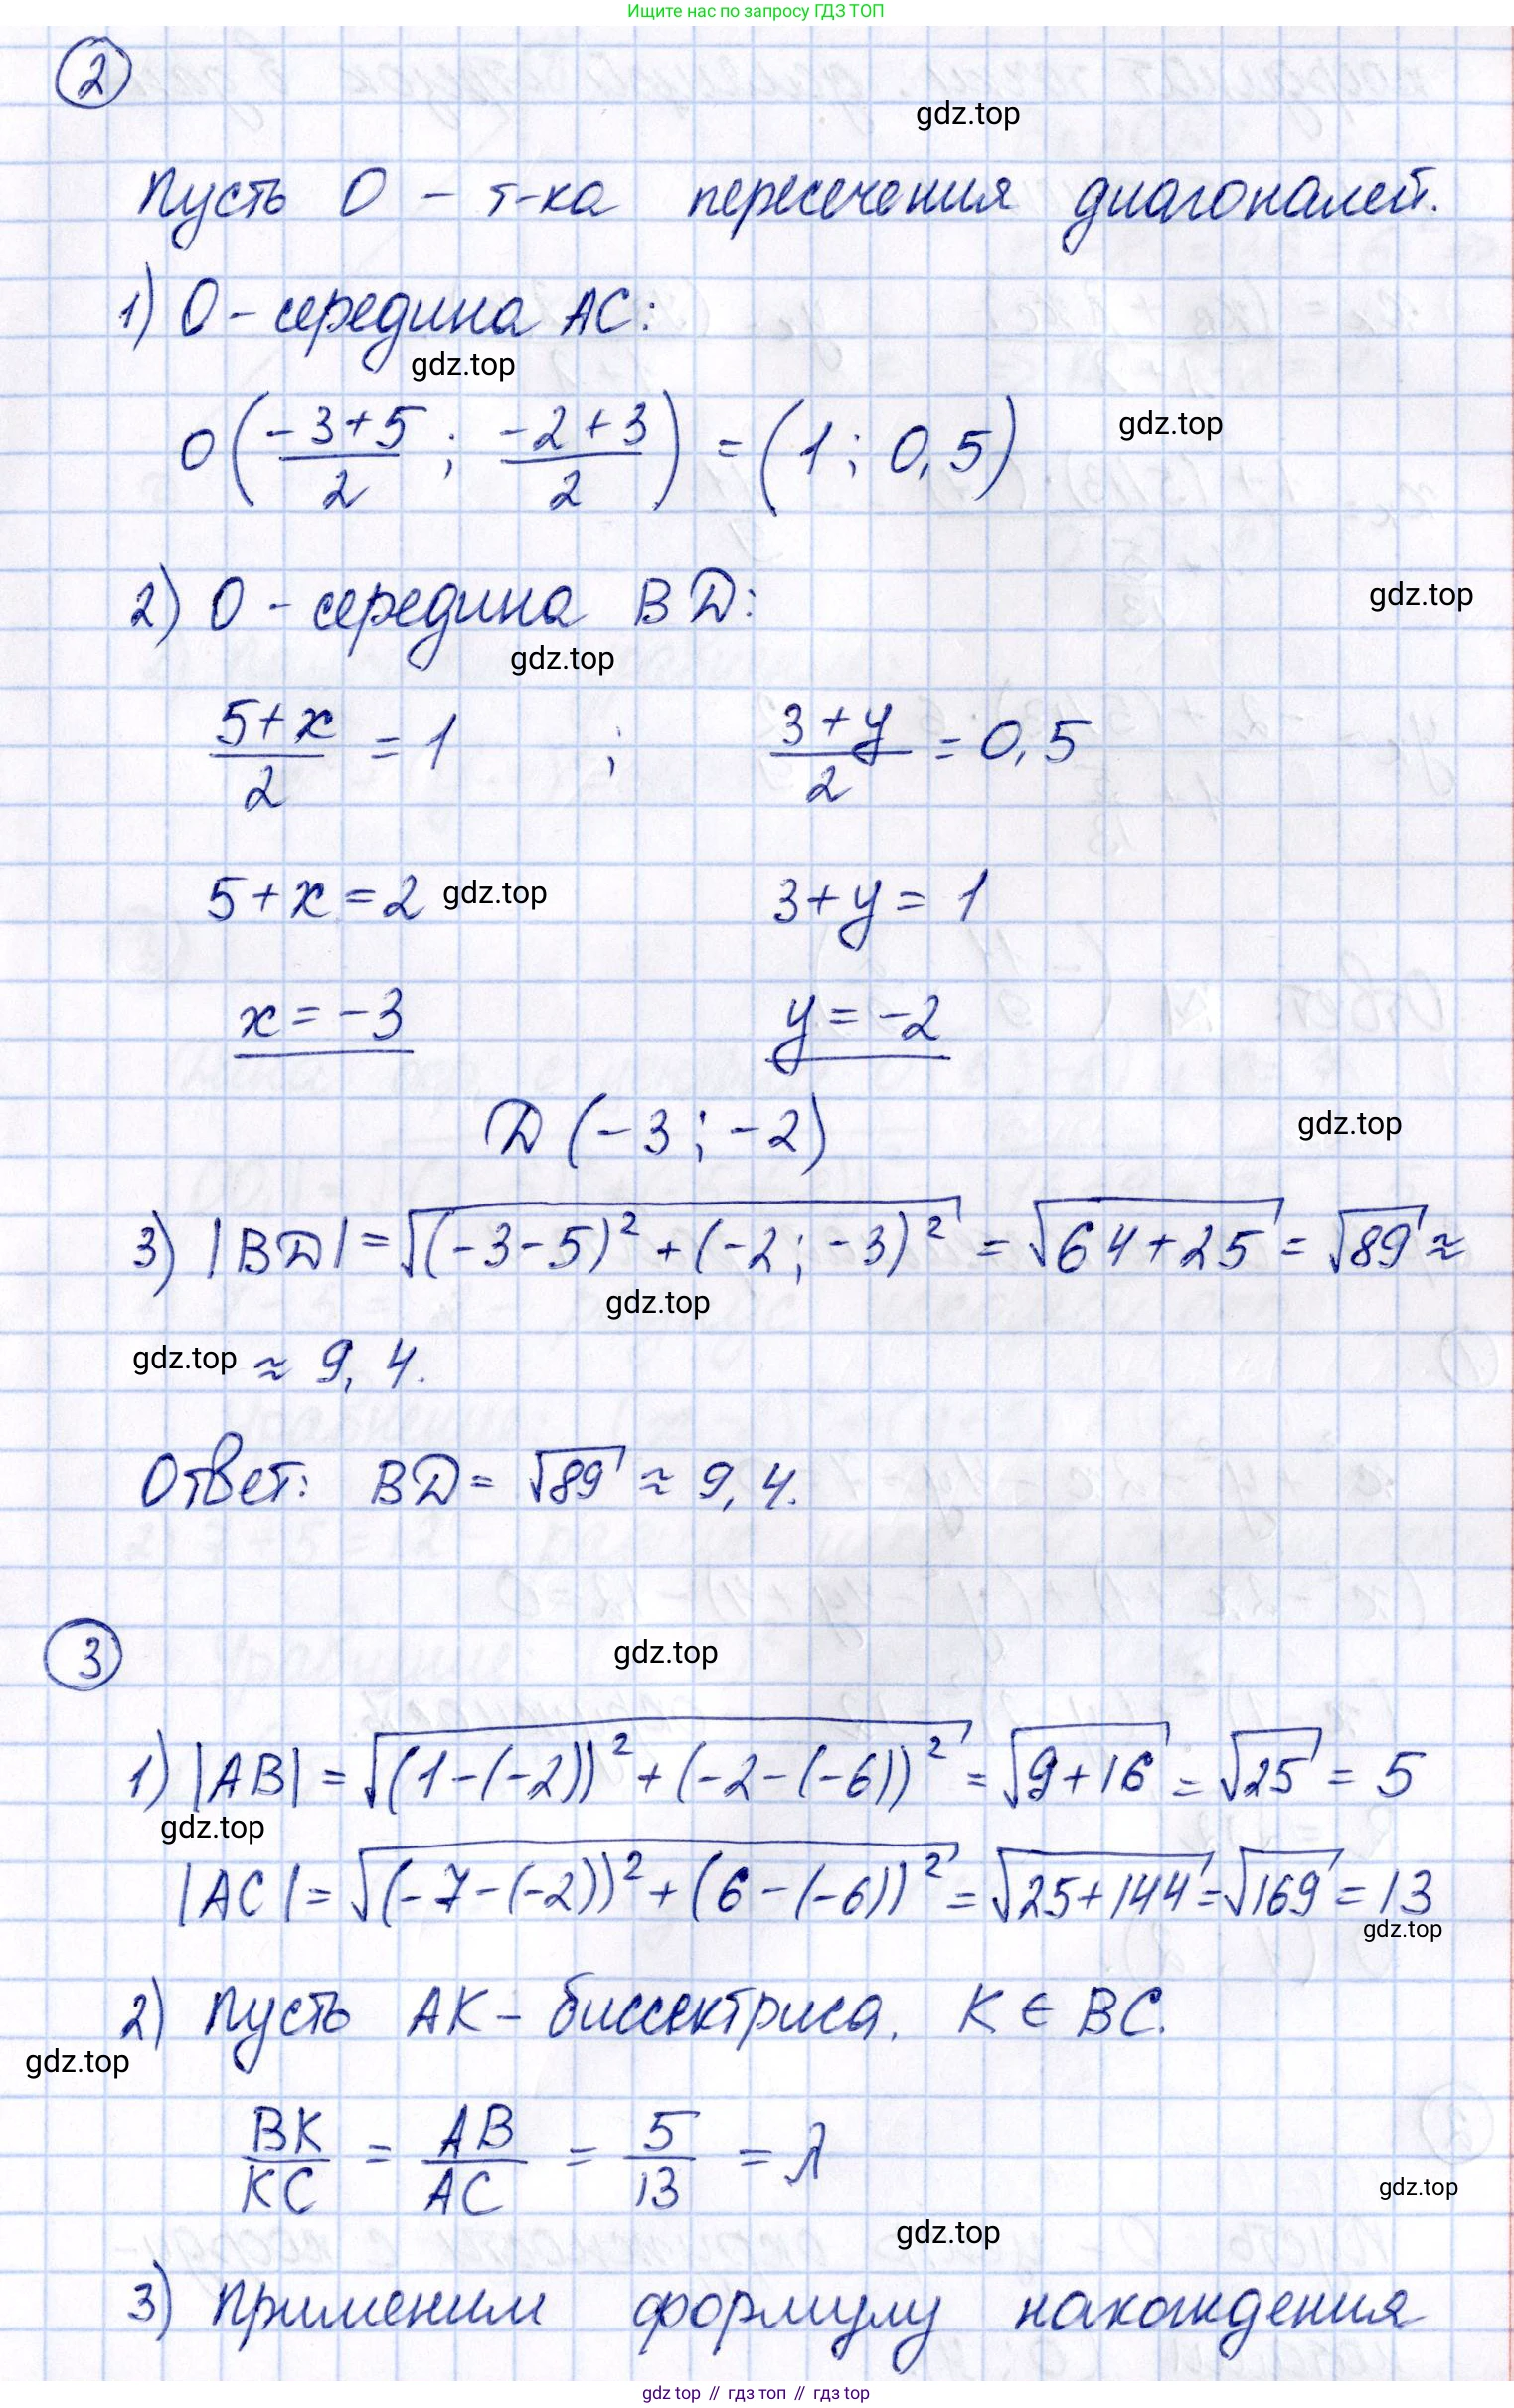 Ищите нас по запросу ГДЗ ТОП
2
gdz.top
Пусть O - т-ка пересечения диагоналей.
1) O - середина AC:
gdz.top
O(-3+5/2 ; -2+3/2) = (1 ; 0,5)
gdz.top
2) O - середина BD:
gdz.top
gdz.top
5+x/2 = 1 ; 3+y/2 = 0,5
5+x=2 gdz.top 3+y=1
x=-3 y=-2
D(-3 ; -2)
gdz.top
3) |BD| = √((-3-5)²+(-2 ; -3)²) = √(64+25) = √89 ≈
gdz.top
gdz.top ≈ 9,4.
Ответ: BD = √89 ≈ 9,4.
3
gdz.top
1) |AB| = √((1-(-2))²+(-2-(-6))²) = √(9+16) = √25 = 5
gdz.top
|AC| = √((-7-(-2))²+(6-(-6))²) = √(25+144) = √169 = 13
gdz.top
2) Пусть AK - биссектриса, K ∈ BC.
gdz.top
BK/KC = AB/AC = 5/13 = λ
gdz.top
gdz.top
3) Применим формулу нахождения
gdz top // гдз топ // гдз top